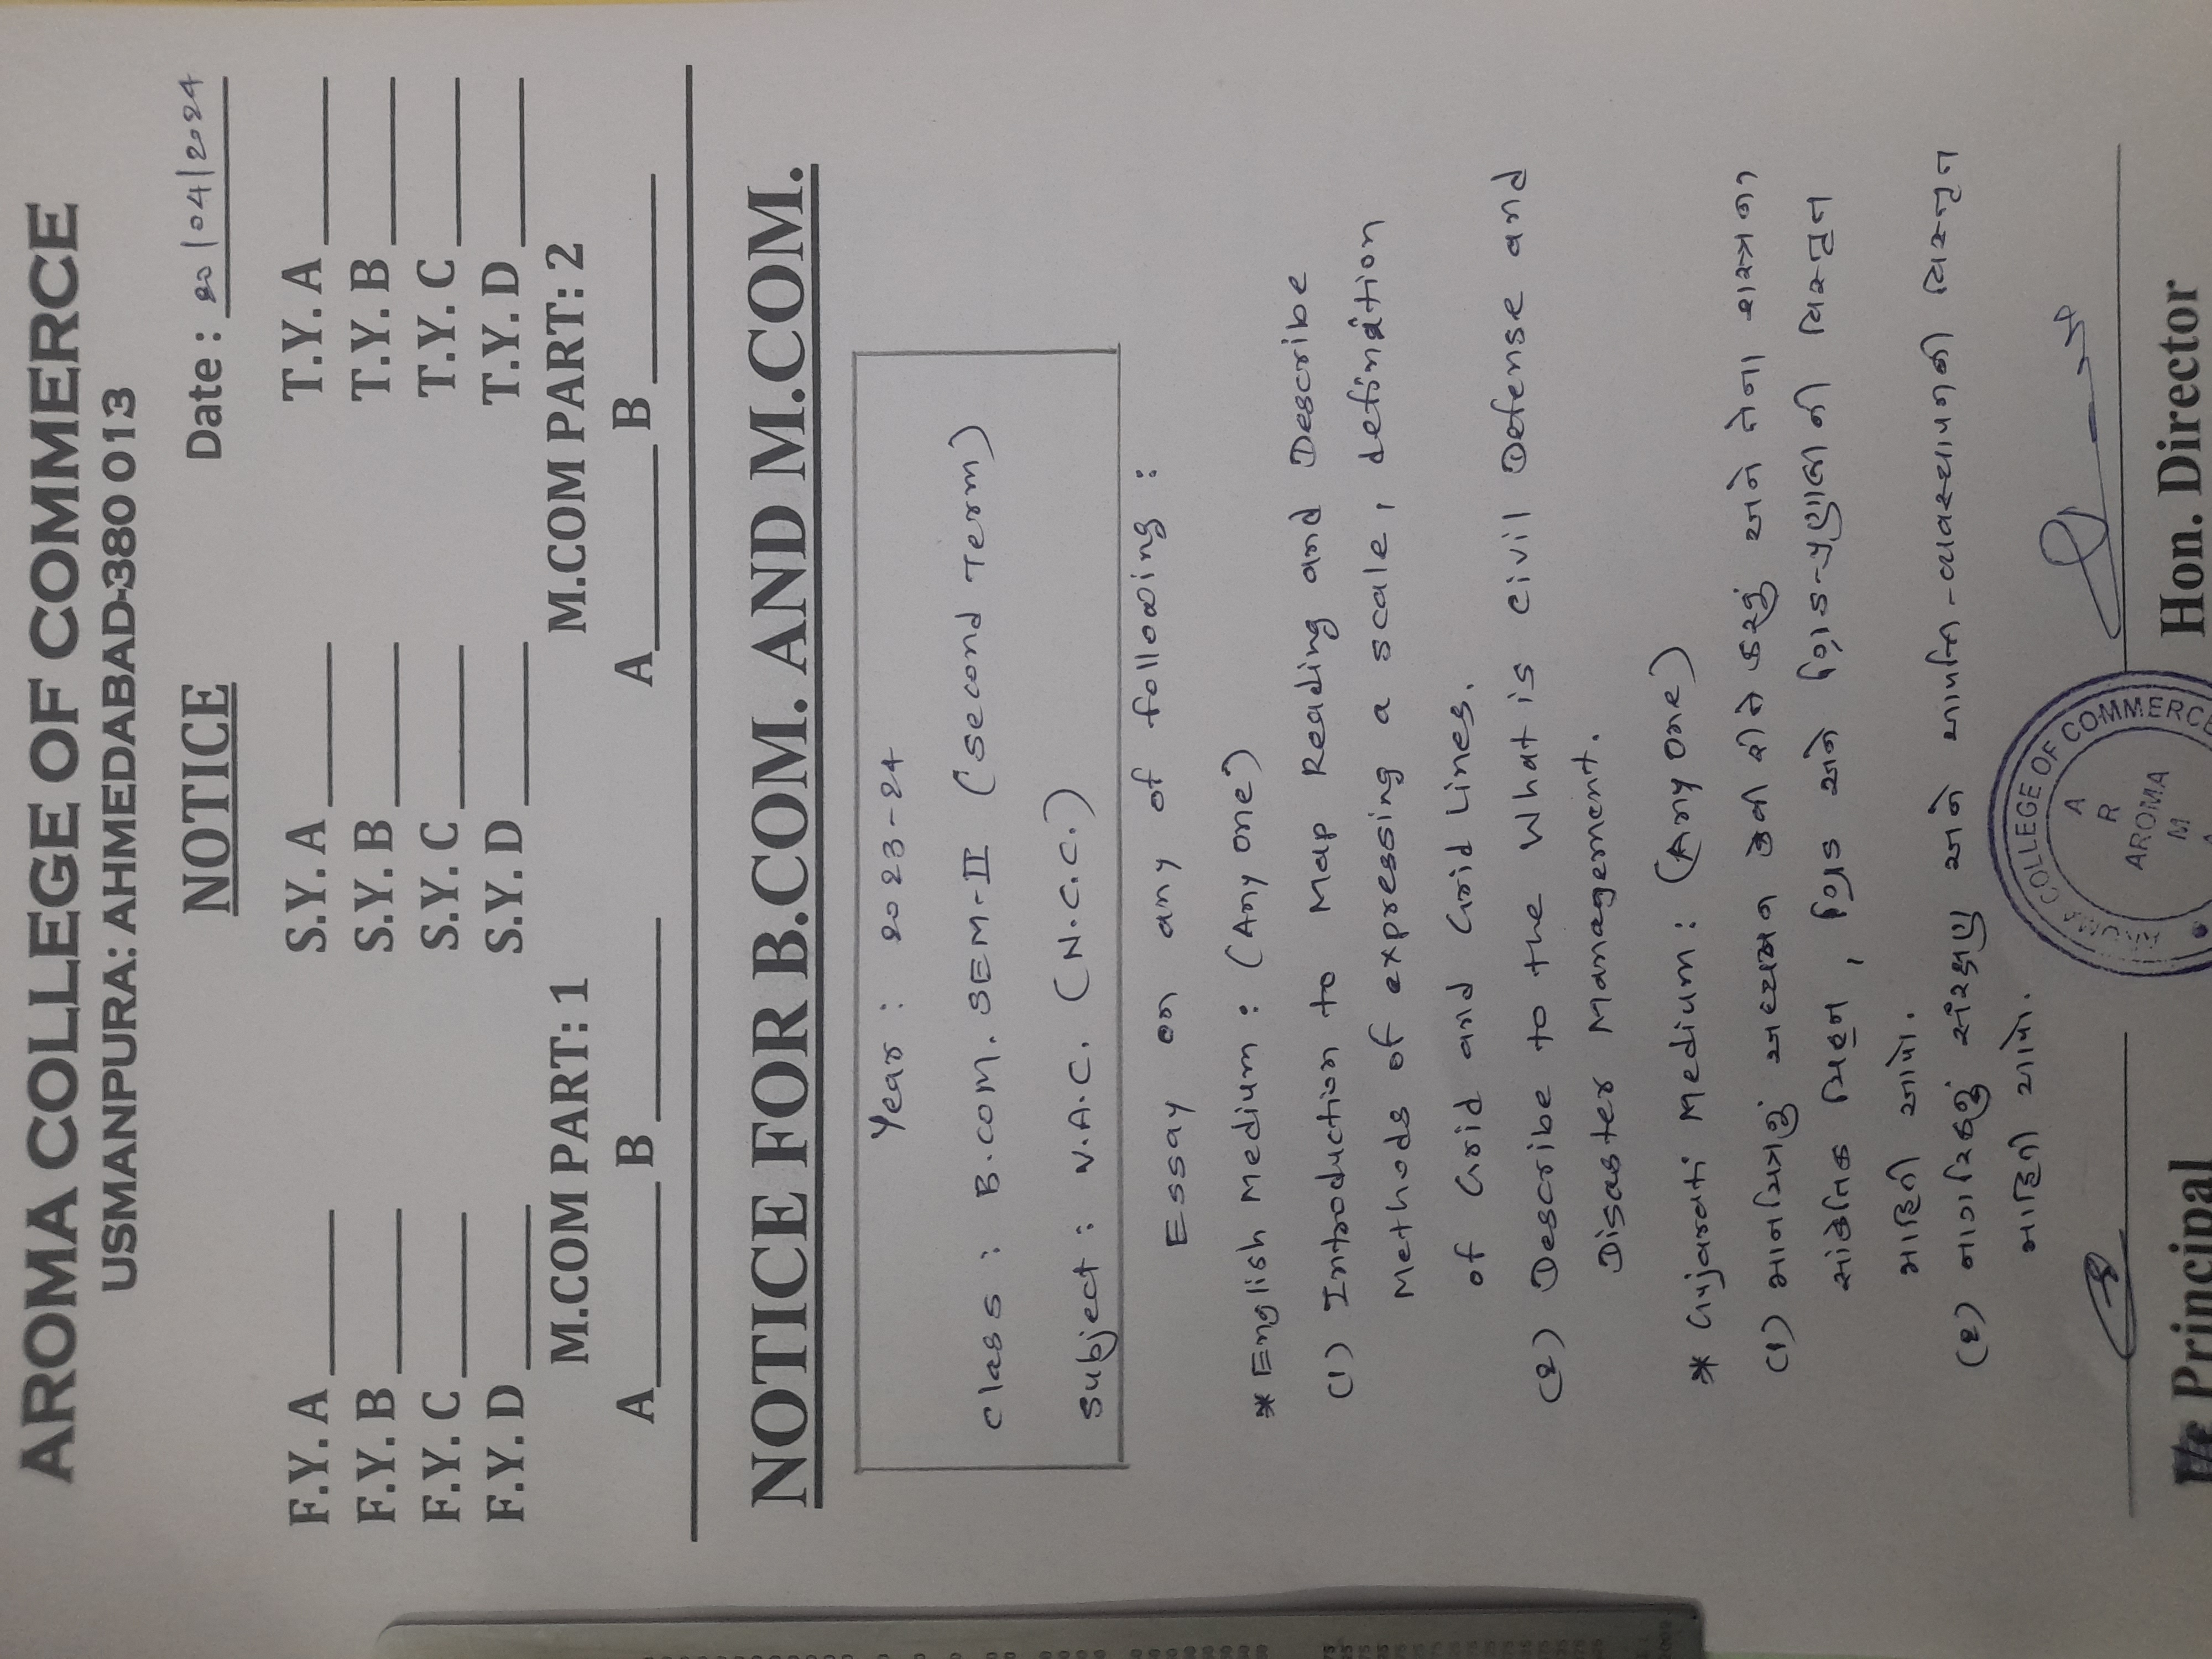 AROMA COLLEGE OF COMMERCE
USMANPURA: AHMEDABAD-380 013
NOTICE Date : 20/04/2024
F.Y. A S.Y. A T.Y. A
F.Y. B S.Y. B T.Y. B
F.Y. C S.Y. C T.Y. C
F.Y. D S.Y. D T.Y. D
M.COM PART: 1 M.COM PART: 2
A B A B
NOTICE FOR B.COM. AND M.COM.
Year : 2023-24
Class : B.COM. SEM-II (Second Term)
Subject : V.A.C. (N.C.C.)
Essay on any of following :
* English Medium : (Any one)
(1) Introduction to Map Reading and Describe
Methods of expressing a scale, definition
of Grid and Grid Lines.
(2) Describe to the What is Civil Defense and
Disaster Management.
* Gujarati Medium : (Any one)
(1) માનચિત્રનું અધ્યયન કેવી રીતે કરવું અને તેના શાસ્ત્રના
સાંકેતિક ચિહ્ન, ગ્રિડ અને ગ્રિડ-પ્રણાલીની વિસ્તૃત
માહિતી આપો.
(2) નાગરિકનું સંરક્ષણ અને આપત્તિ-વ્યવસ્થાપનની વિસ્તૃત
માહિતી આપો.
COLLEGE OF COMMERCE
A
R
AROMA
M
I/c Principal Hon. Director